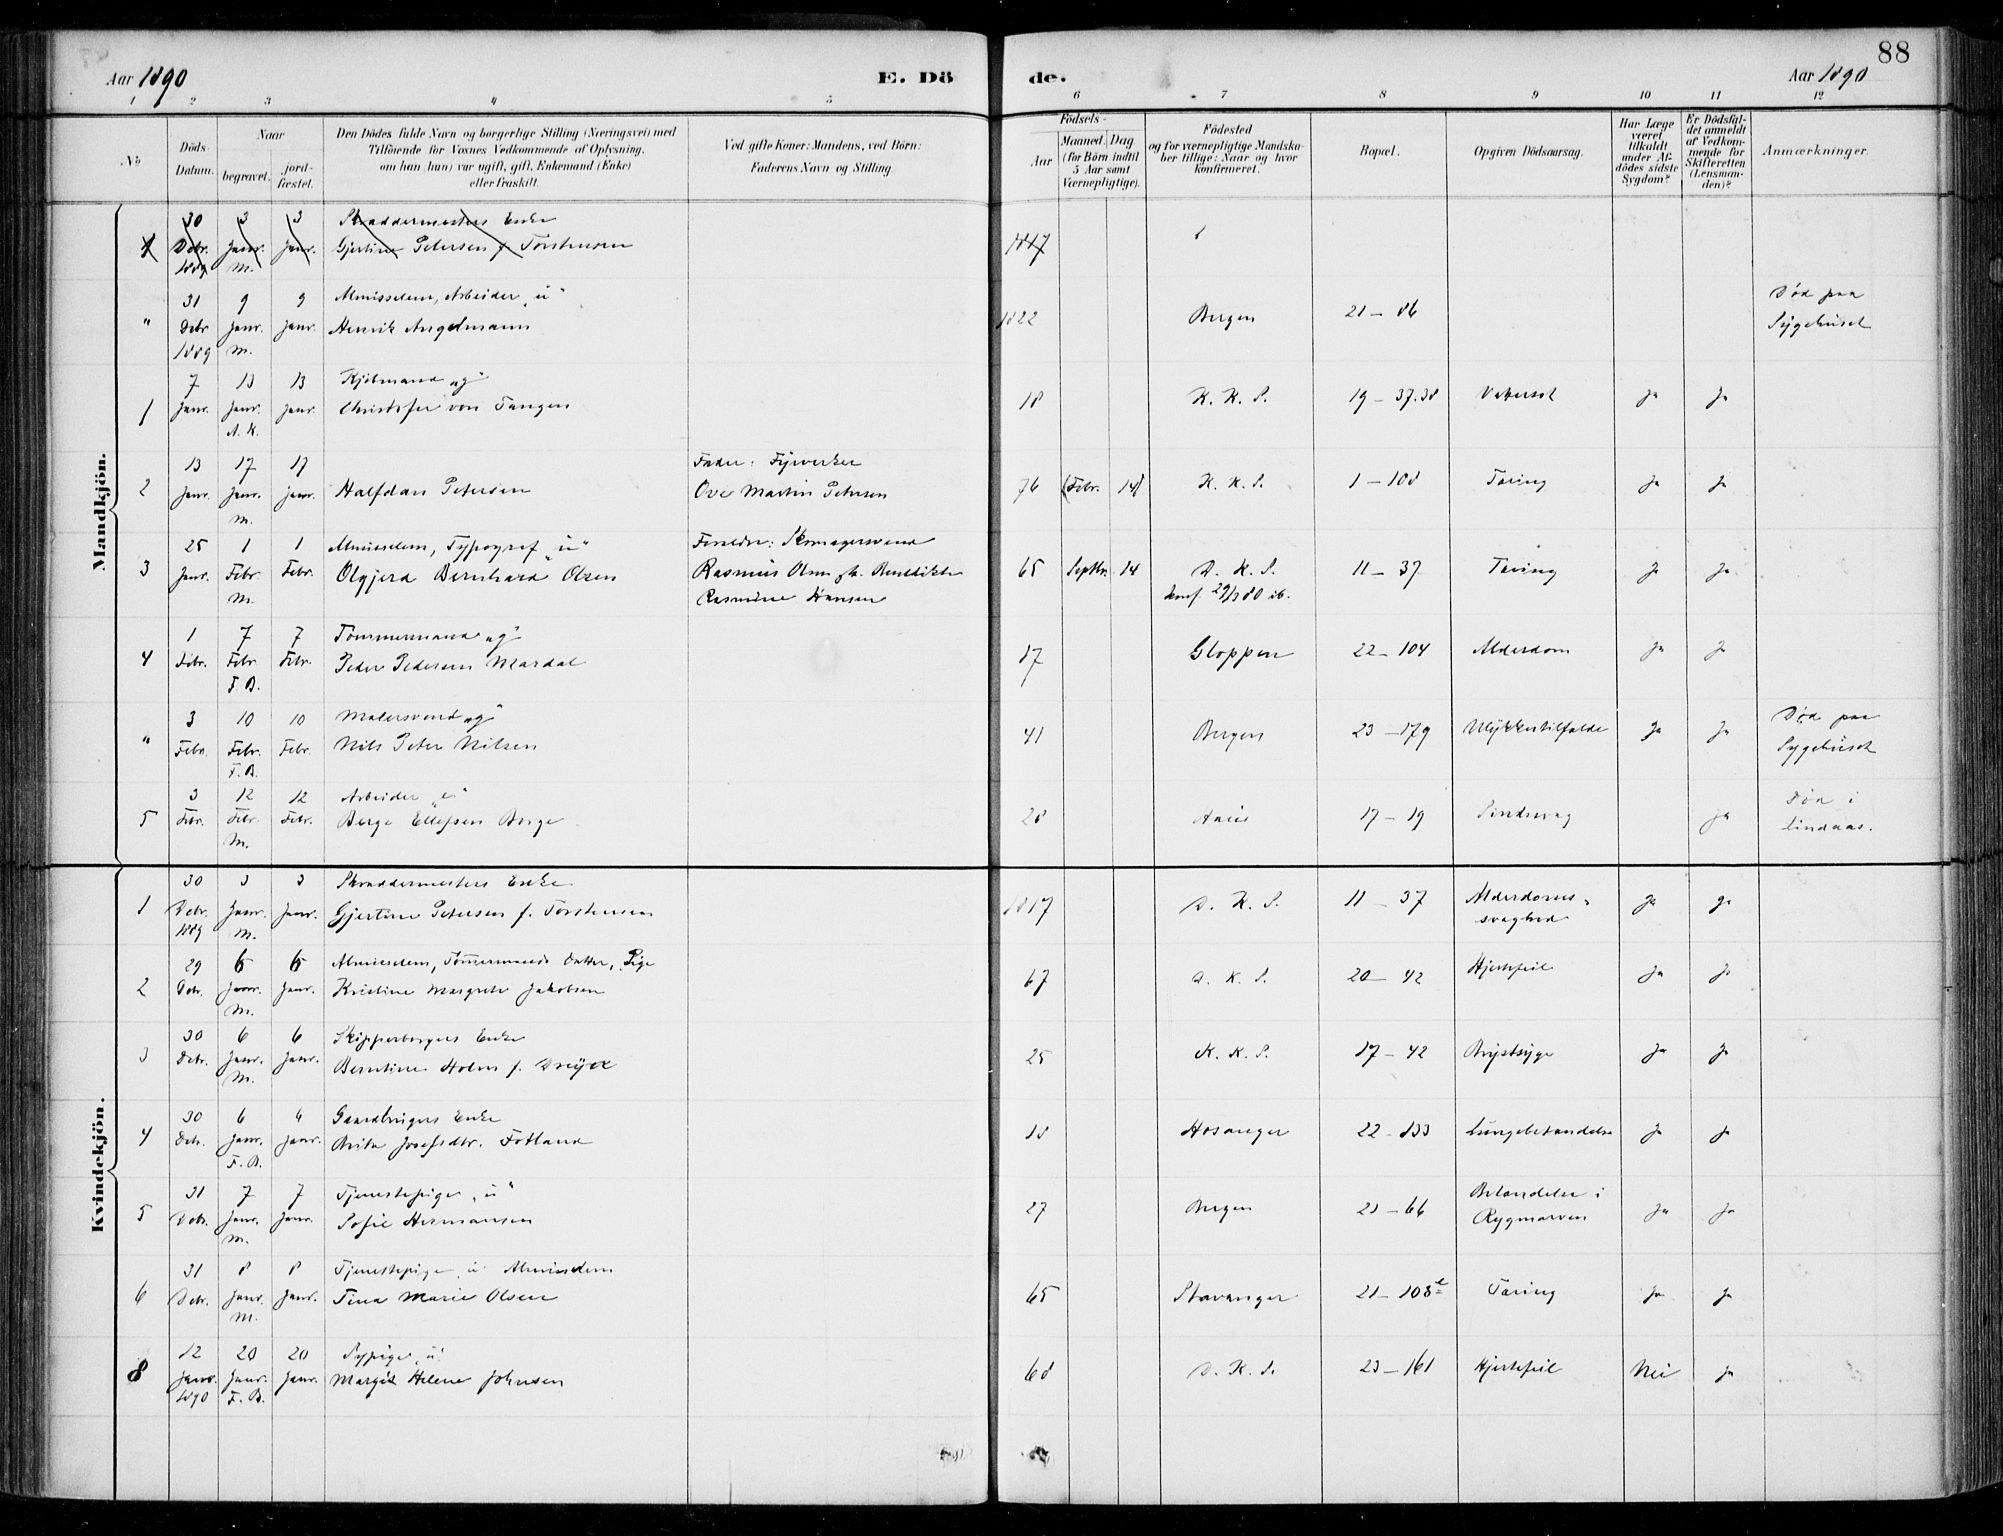 88
Aar 1890 E. Dö de. Aar 1890
1 2 3 4 5 6 7 8 9 10 11 12
No
Döds-Datum.
Naar
begravet.
jordfæstet.
Den Dödes fulde Navn og borgerlige Stilling (Næringsvei) med
Tilföiende for Voxnes Vedkommende af Oplysning,
om han (hun) var ugift, gift, Enkemand (Enke)
eller fraskilt.
Ved gifte Koner: Mandens, ved Börn:
Faderens Navn og Stilling.
Födsels-
Aar
Maaned.
Dag
(for Börn indtil
5 Aar samt
Værnepligtige).
Födested
og for værnepligtige Mandska-
ber tillige: Naar og hvor
konfirmeret.
Bopæl.
Opgiven Dödsaarsag.
Har Læge
været
tilkaldt
under Af-
dödes sidste
Sygdom?
Er Dödsfal-
det anmeldt
af Vedkom-
mende for
Skifteretten
(Lensman-
den)?
Anmærkninger.
Mandkjön.
30 3 3 Skraddermesters Enke
1 Debr. Janr. Janr. Gjertine Petersen f. Torstensen 1817
1889 M.
31 9 9 Almisselem, Arbeider "u"
" Debr Janr. Janr. Henrik Angelmann 1822 Bergen 21-86 Död paa
1889 M. Sygehuset
7 13 13 Kjöbmand "g"
1 Janr. Janr. Janr. Christofer von Tangen 18 K. K. S. 19-37.38 Ja Ja
A. K.
13 17 17 Fader: Fyrverker
2 Janr. Janr. Janr. Halfdan Petersen Ove Martin Petersen 76 (Febr. 14) K. K. S. 1-108 Tæring Ja Ja
M.
25 1 1 Almisselem, Typograf "u" Forældre: Skomagersvend
3 Janr. Febr. Febr. Olgjerd Bernhard Olsen Rasmus Olsen 65 Septbr. 14 D. K. S. 11-37 Tæring Ja Ja
M. Rasmine Hansen konf. 29/3 80 ib.
1 7 7 Tömmermand "g"
4 Febr. Febr. Febr. Peder Pedersen Mardal 17 Gloppen 22-104 Alderdom Ja Ja
F. B.
3 10 10 Malersvend "g"
" Febr. Febr. Febr. Nils Peter Nilsen 41 Bergen 23-179 Ulykkestilfælde Ja Ja Död paa
F. B. Sygehuset
3 12 12 Arbeider "e"
5 Febr. Febr. Febr. Berge Ellefsen Berge 28 Haus 17-19 Sindssvag Ja Död i
M. Lindaas.
Kvindekjön.
30 3 3 Skraddermesters Enke
1 Debr. Janr. Janr. Gjertine Petersen f. Torstensen 1817 D. K. S. 11-37 Alderdoms-
1889 M. svaghed Ja Ja
29 6 6 Almisselem, Tömmermands Datter, Pige
2 Debr. Janr. Janr. Kristine Margrete Jakobsen 67 D. K. S. 20-42 Hjertefeil Ja Ja
M.
30 6 6 Skipperborgers Enke
3 Debr. Janr. Janr. Berntine Holm f. 25 K. K. S. 17-42 Brystsyge Ja Ja
M.
30 6 6 Gaardbrugers Enke
4 Debr. Janr. Janr. Brita Josefsdtr. Fotland 18 Hosanger 22-133 Lungebetændelse Ja Ja
F. B.
31 7 7 Tjenestepige "u"
5 Debr. Janr. Janr. Sofie Hermansen 27 Bergen 21-66 Betændelse i
M. Rygmarven Ja Ja
31 8 8 Tjenestepige "u" Almisselem
6 Debr. Janr. Janr. Tina Marie Olsen 65 Stavanger 21-108 Tæring Ja Ja
M.
12 20 20 Sypige "u"
8 Janr. Janr. Janr. Margit Helene Johnsen 68 D. K. S. 23-161 Hjertefeil Nei Ja
1890 F. B.